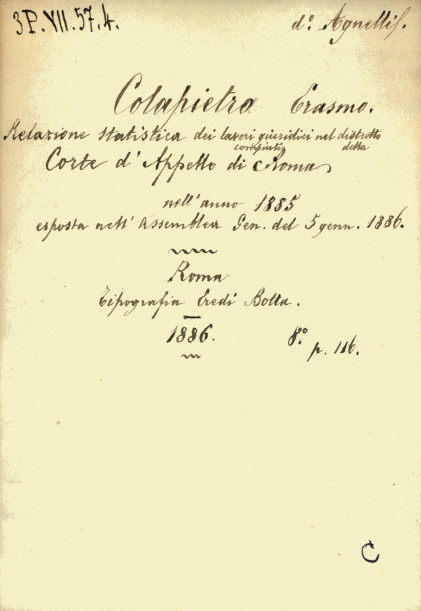 3P.VII.57.4.
d°. Agnelli f.
Colapietro Erasmo.
Relazione statistica dei lavori giuridici compiuti nel distretto della
Corte d'Appello di Roma
nell'anno 1885
esposta nell'Assemblea Gen. del 5 genn. 1886.
Roma
Tipografia Eredi Botta.
1886.
8°. p. 116.
C